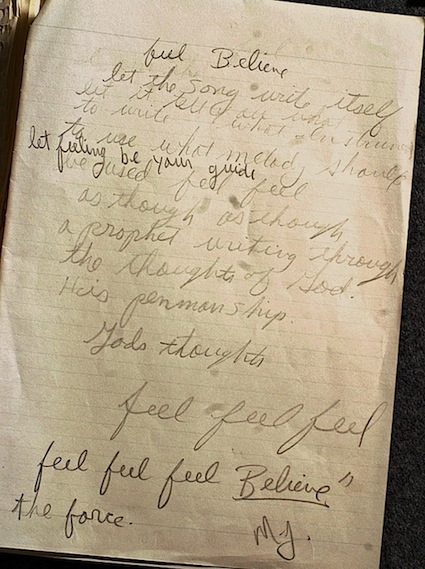 feel Believe
let the song write itself
let it tell you what
to write what Instruments
to use what melody should
let feeling be your guide
be used feel feel
as though as though
a prophet writing through
the thoughts of God.
His penmanship.
Gods thoughts
feel feel feel
feel feel feel Believe"
the force.
M.J.